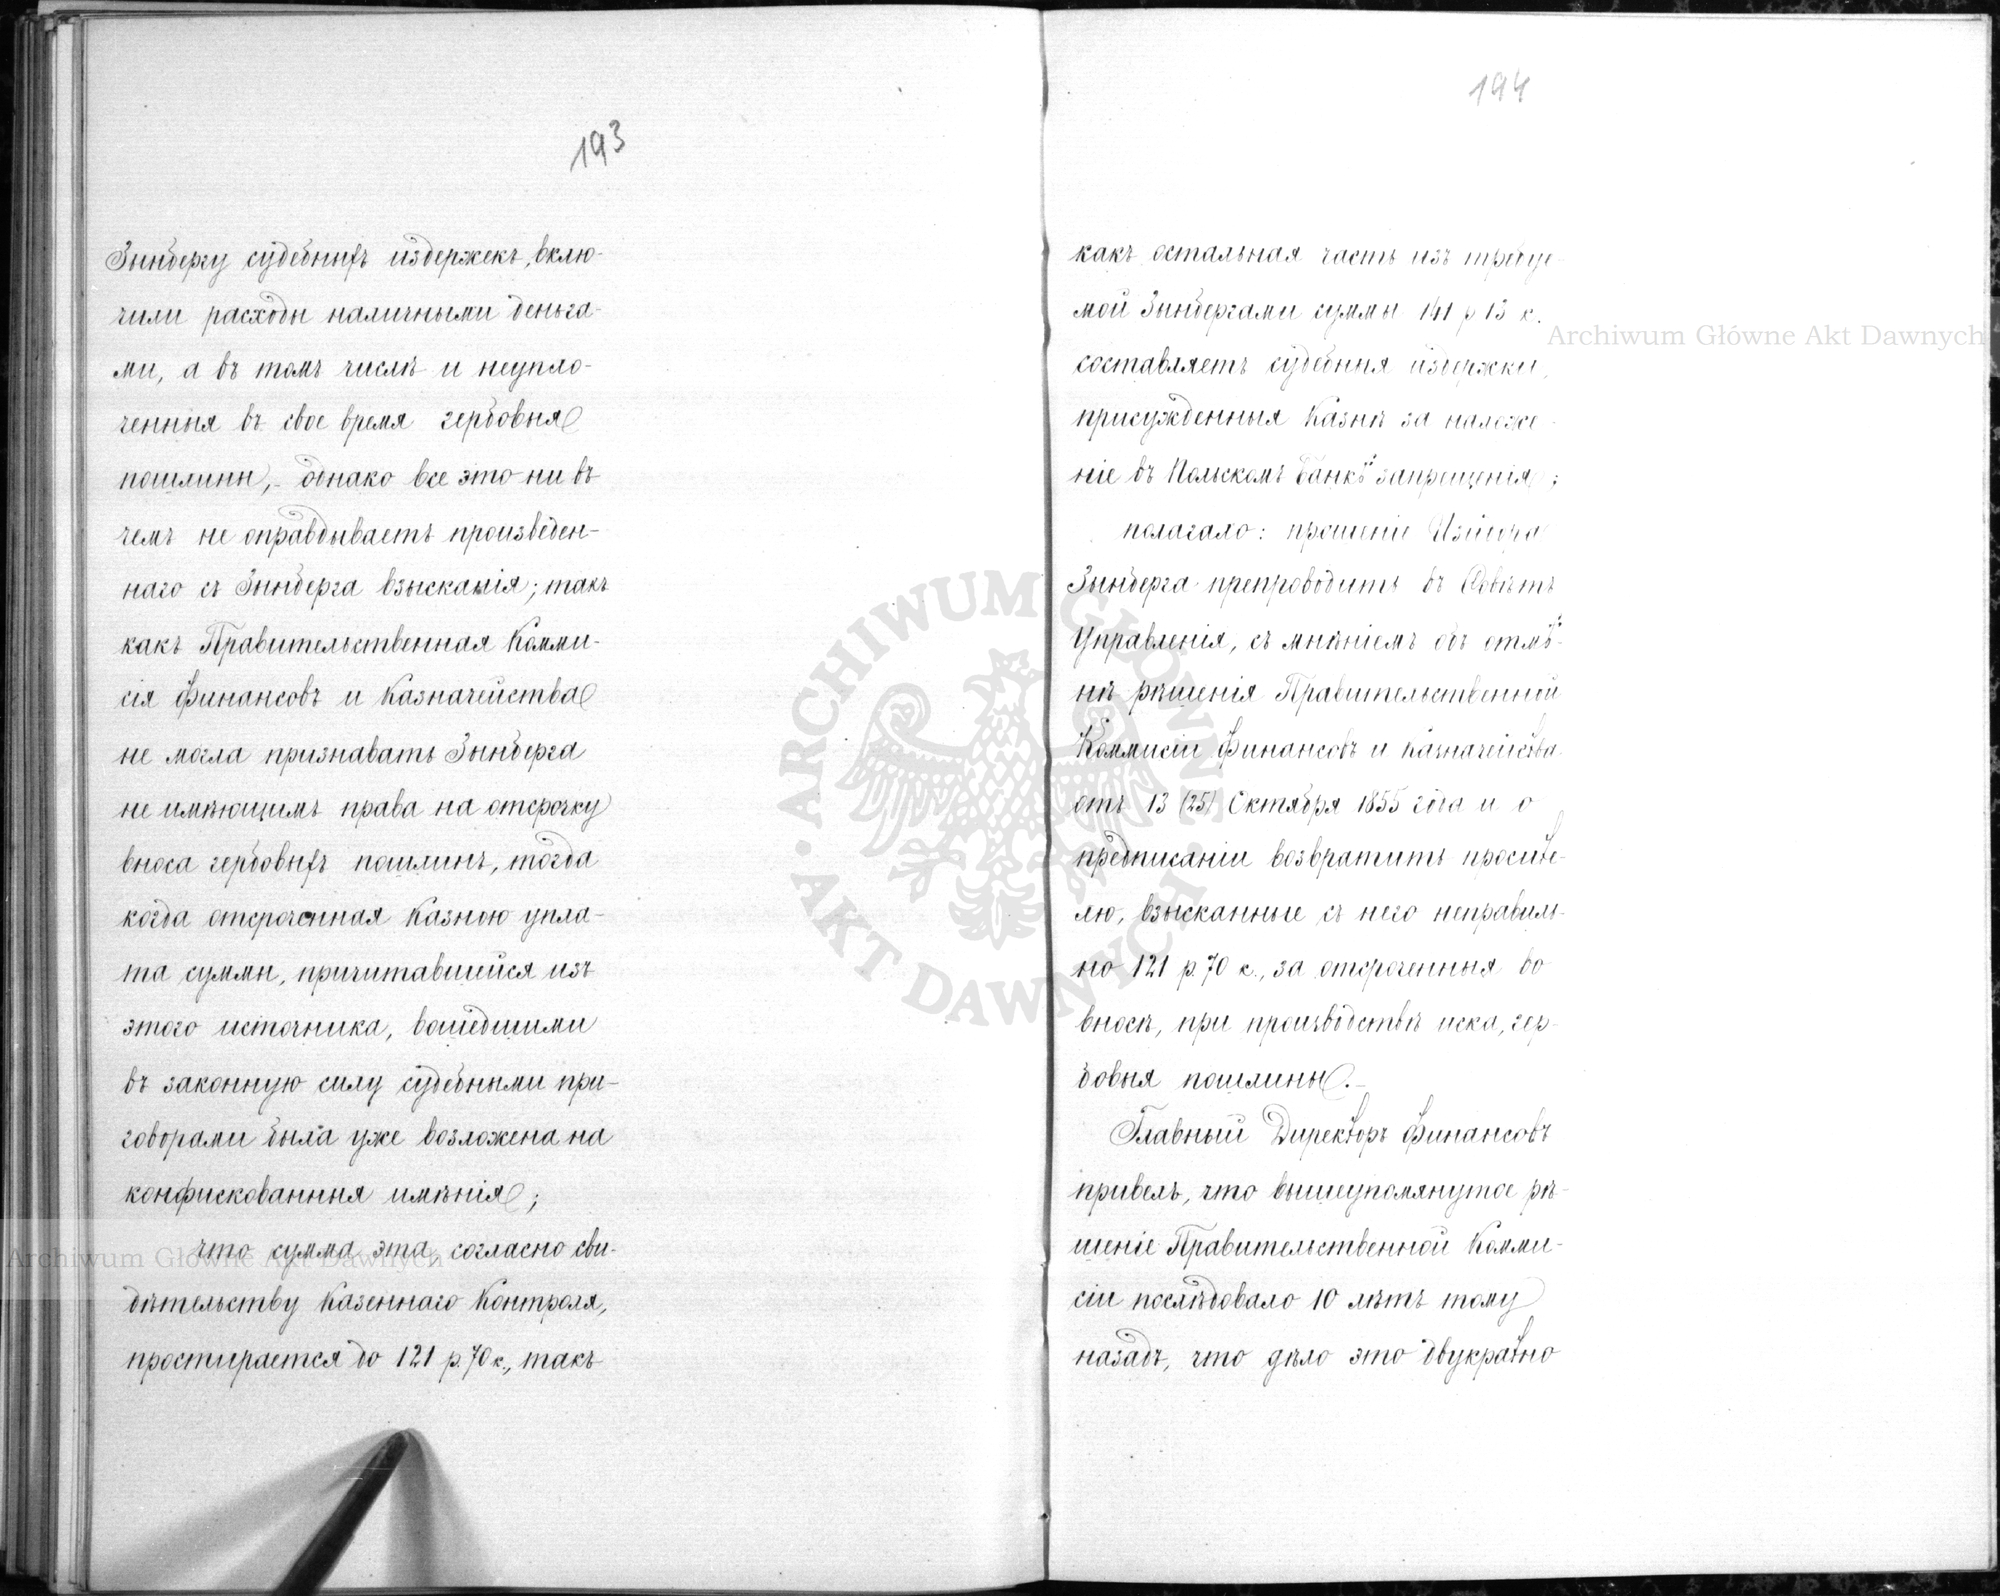 193
Зынбергу судебныхъ издержекъ, вклю-
чили расходы наличными деньга-
ми, а въ томъ числѣ и неупло-
ченныя въ свое время гербовыя
пошлины, - однако все это ни въ
чемъ не оправдываетъ произведен-
наго съ Зынберга взысканія; такъ
какъ Правительственная Комми-
сія Финансовъ и Казначейства
не могла признавать Зынберга
не имѣющимъ права на отсрочку
вноса гербовыхъ пошлинъ, тогда
когда отсроченная Казною упла-
та суммы, причитавшейся изъ
этого источника, вошедшими
въ законную силу судебными при-
говорами была уже возложена на
конфискованныя имѣнія;
что сумма эта, согласно сви-
дѣтельству Казеннаго Контроля,
простирается до 121 р. 70 к., такъ
194
какъ остальная часть изъ требуе-
мой Зынбергами суммы 141 р 13 к.
составляетъ судебныя издержки,
присужденныя Казнѣ за наложе-
ніе въ Польскомъ Банкѣ запрещенія;
полагало: прошеніе Изидора
Зынберга препроводить въ Совѣтъ
Управленія, съ мнѣніемъ объ отмѣ-
нѣ рѣшенія Правительственной
Коммисіи Финансовъ и Казначейства
отъ 13 (25) Октября 1855 года и о
предписаніи возвратить просите-
лю, взысканные съ него неправиль-
но 121 р. 70 к., за отсроченныя во
вносѣ, при производствѣ иска, гер-
бовыя пошлины. -
Главный Директоръ Финансовъ
привелъ, что вышеупомянутое рѣ-
шеніе Правительственной Комми-
сіи послѣдовало 10 лѣтъ тому
назадъ, что дѣло это двукратно
Archiwum Główne Akt Dawnych
Archiwum Główne Akt Dawnych
ARCHIWUM GŁÓWNE • AKT DAWNYCH •